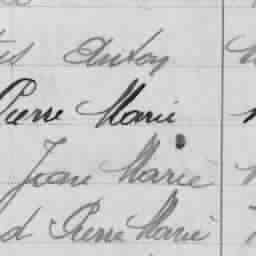 Anton
Pierre Marie
Jean Marie
d Pierre Marie